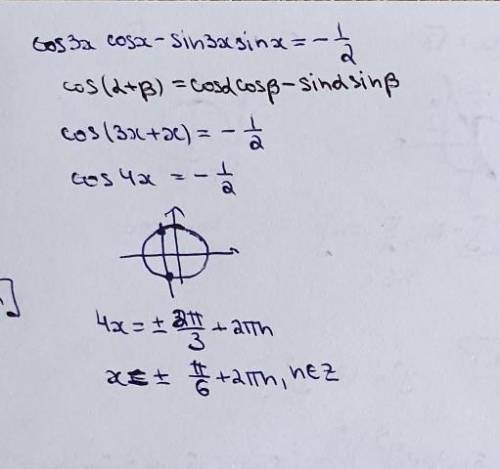 cos3x cosx - sin3x sinx = -1/2
cos(α+β) = cosα cosβ - sinα sinβ
cos(3x+x) = -1/2
cos 4x = -1/2
4x = ± 2π/3 + 2πn
x = ± π/6 + 2πn, n∈Z